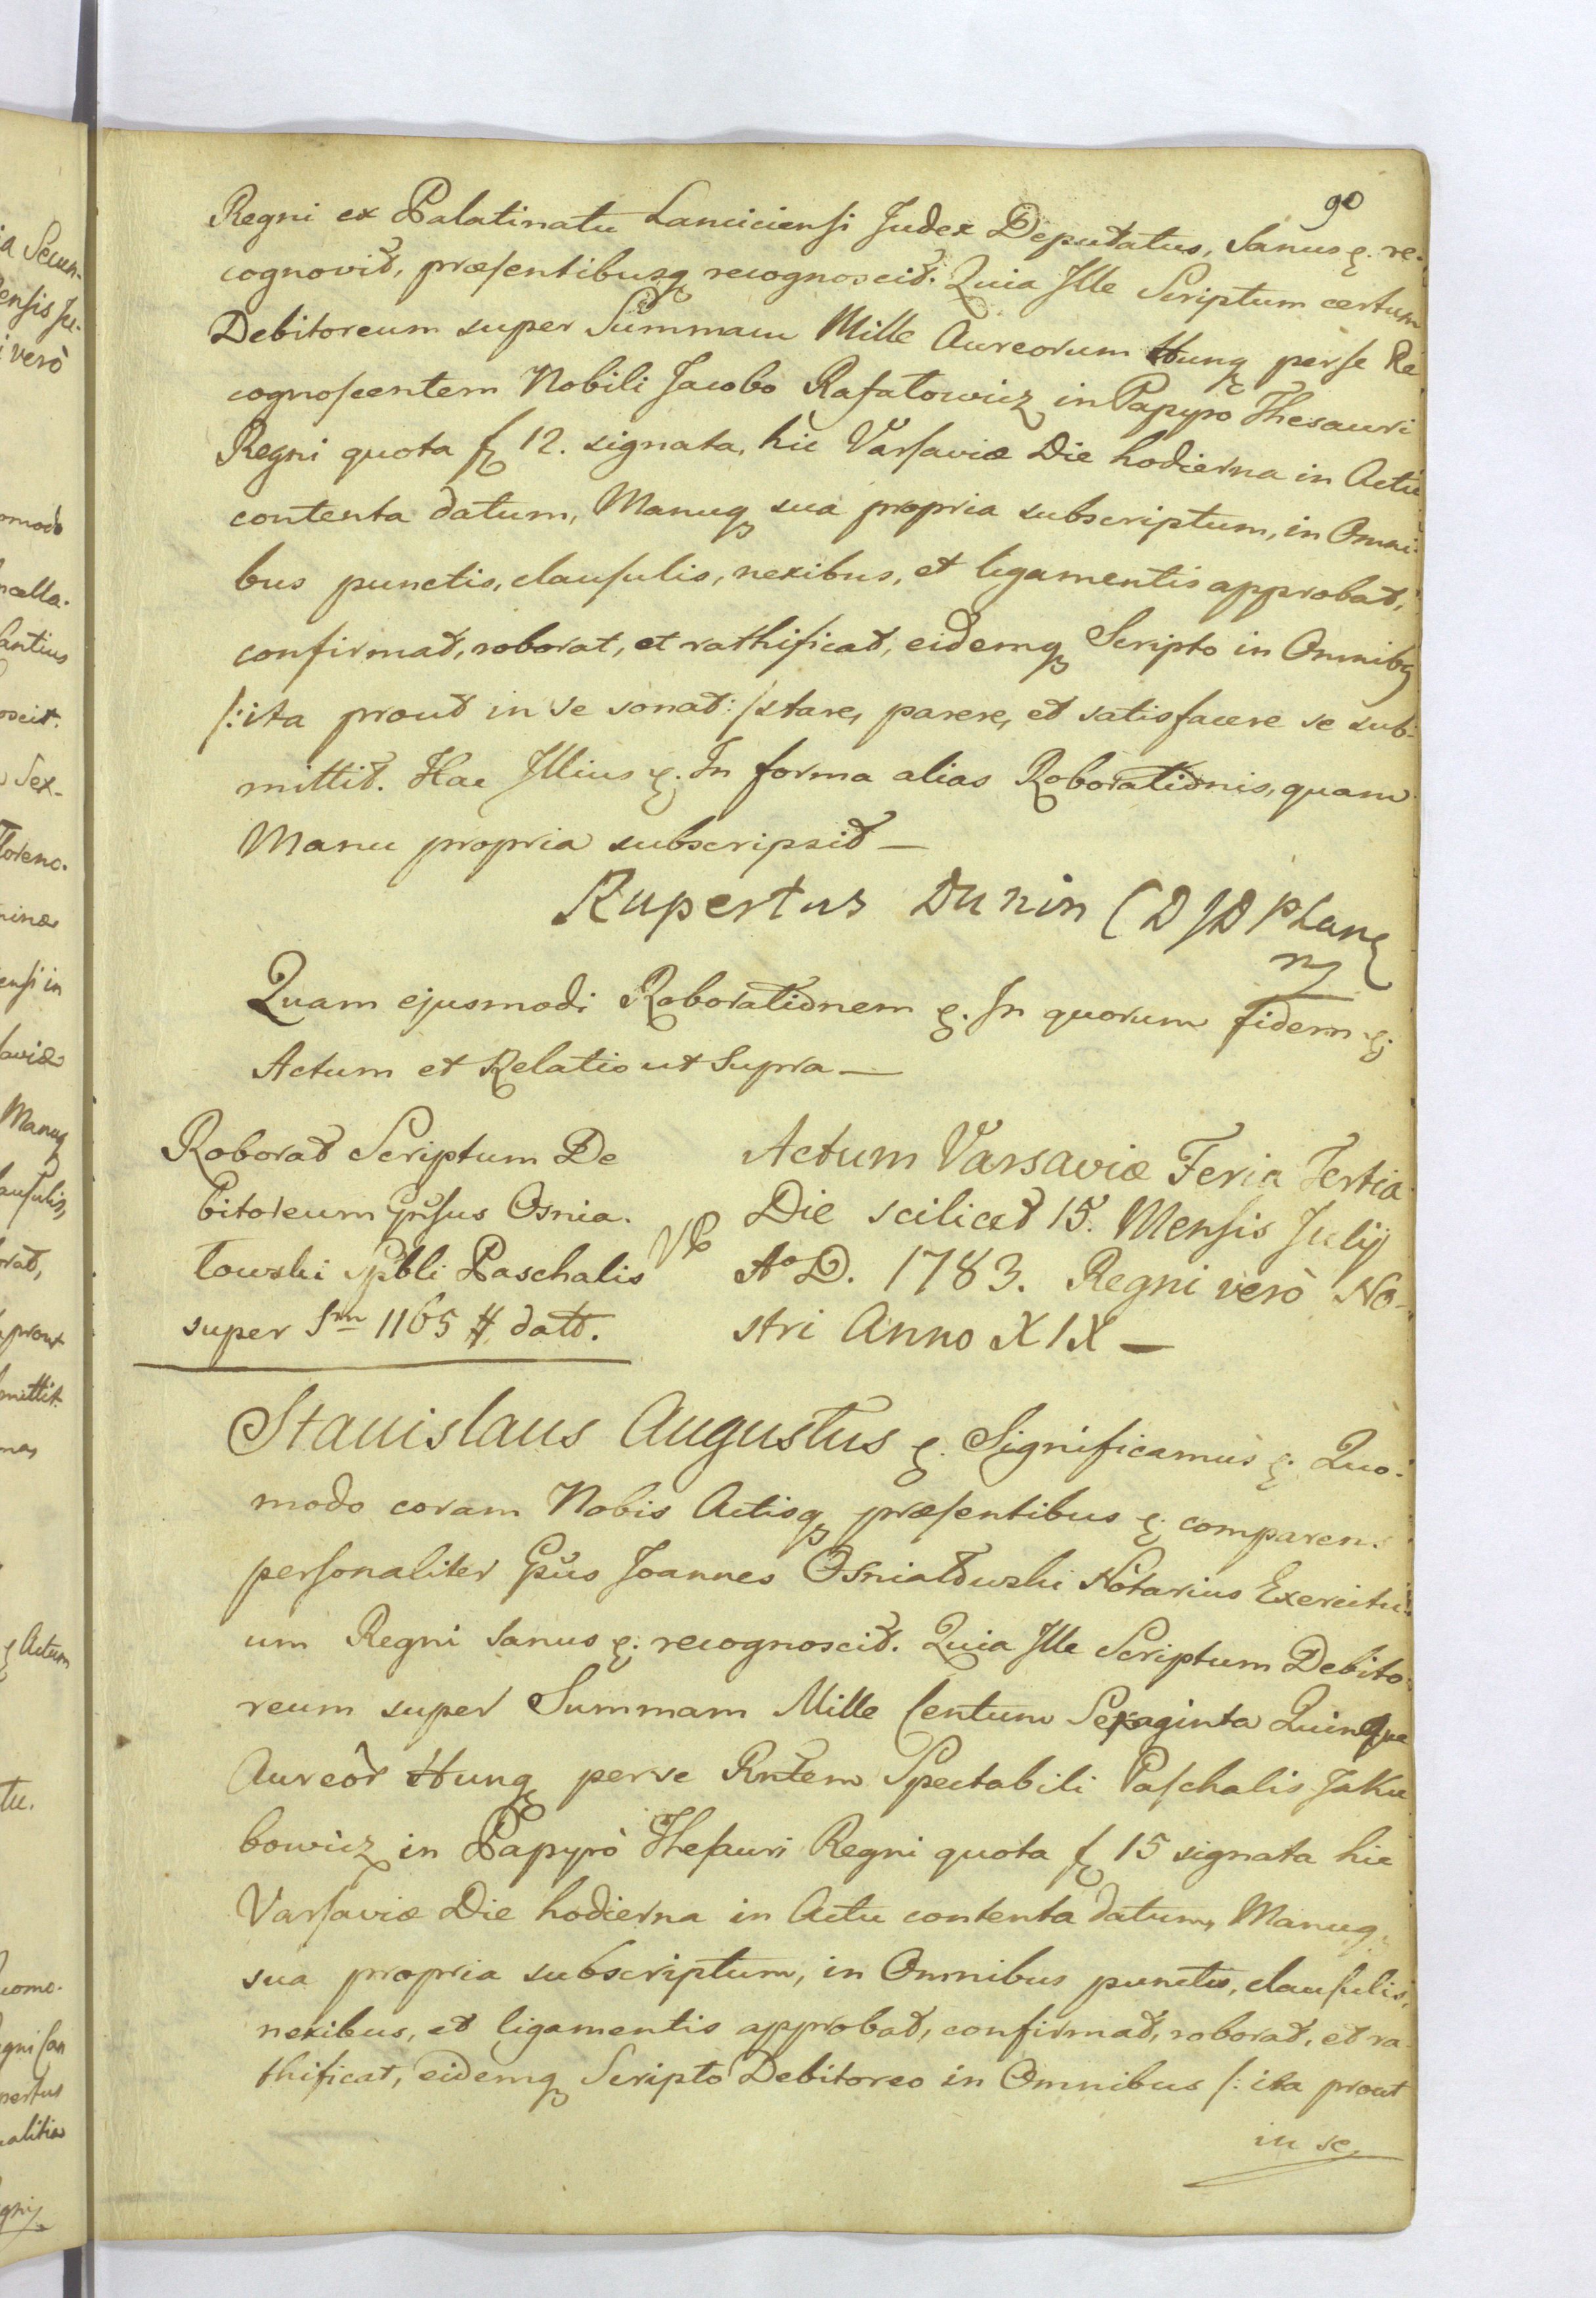 90
Regni ex Palatinatu Lanciciensi Judex Deputatus, Sanus &. re-
cognovit, præsentibusq recognoscit. Quia Ille Scriptum certum
Debitoreum super Summam Mille Aureorum Hung perse Re
cognoscentem Nobili Jacobo Rafałowicz in Papyro Thesauri
Regni quota f 12. signata, hic Varsaviæ Die hodierna in Actu
contenta datum, Manuq sua propria subscriptum, in Omni-
bus punctis, clausulis, nexibus, et ligamentis approbat,
confirmat, roborat, et rathificat, eidemq Scripto in Omnibq
/: ita prout in se sonat :/ stare, parere, et satisfacere se sub-
mittit. Hac Illius &. In forma alias Roborationis, quam
Manu propria subscripsit —
Rupertus Dunin
Quam ejusmodi Roborationem &. In quorum fidem &.
Actum et Relatio ut Supra —
Roborat Scriptum De
bitoreum Gnsus Osnia-
łowski Spbli Paschalis
super Smm 1165 # datt.
Actum Varsaviæ Feria Tertia
Die scilicet 15. Mensis Julij
Aº D. 1783. Regni verò No-
stri Anno XIX —
Stanislaus Augustus &. Significamus &. Quo-
modo coram Nobis Actisq præsentibus &. comparen.
personaliter Gnus Joannes Osniałowski Notarius Exercitu-
um Regni sanus &. recognoscit. Quia Ille Scriptum Debito-
reum super Summam Mille Centum Sexaginta Quinque
Aureor Hung perse Rntem Spectabili Paschalis Jaku
bowicz in Papyrò Thesauri Regni quota f 15 signata hic
Varsaviæ Die hodierna in Actu contenta datum, Manuq
sua propria subscriptum, in Omnibus punctis, clausulis,
nexibus, et ligamentis approbat, confirmat, roborat, et ra
thificat, eidemq Scripto Debitoreo in Omnibus /: ita prout
in se